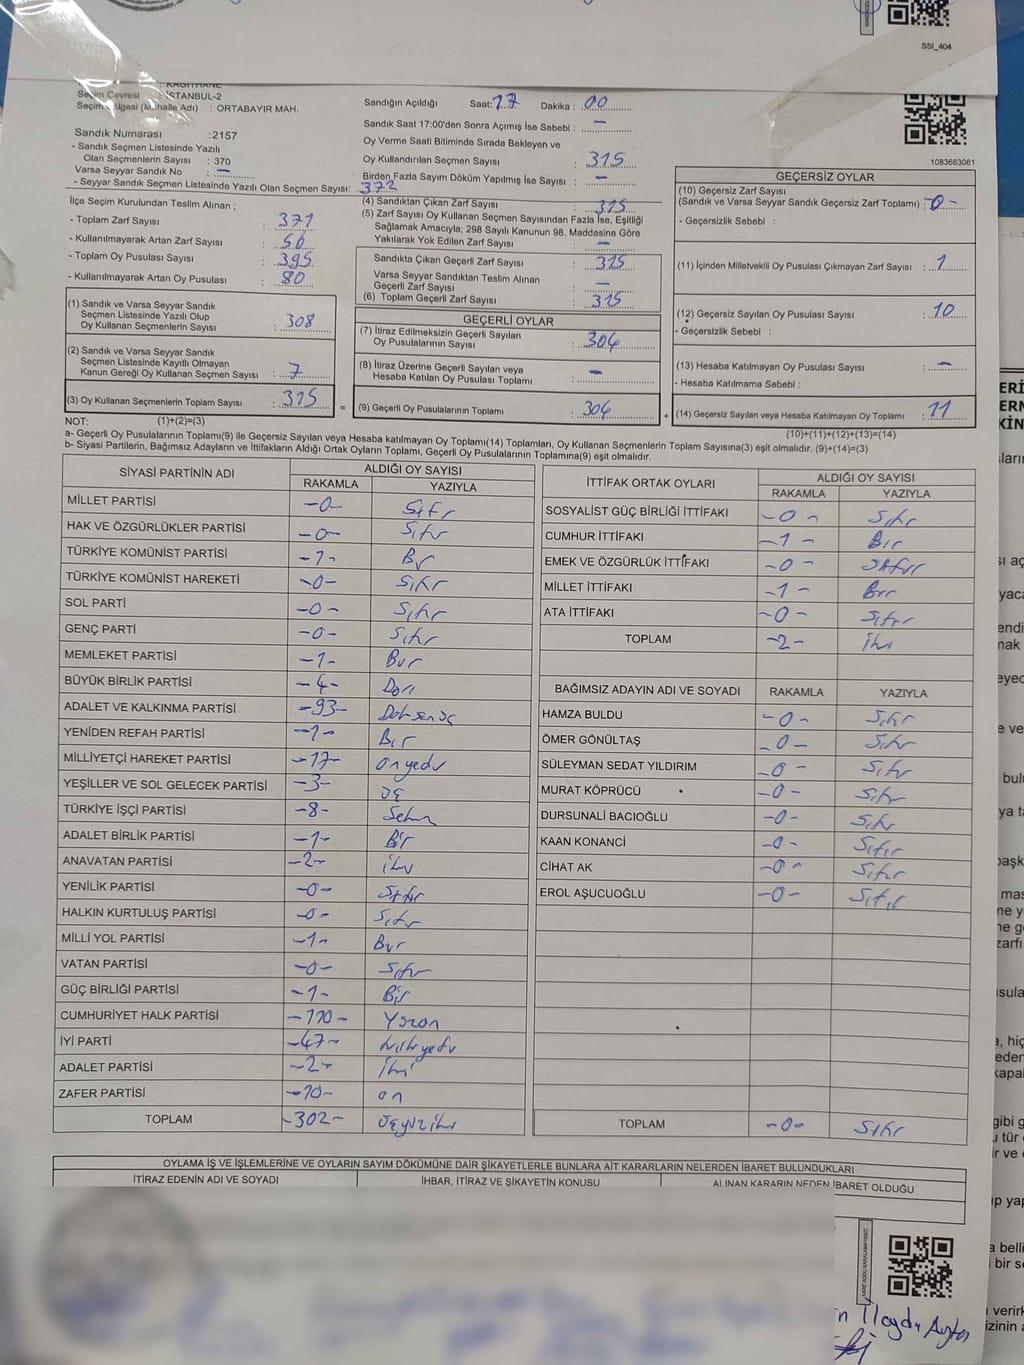 SSI_404
KAĞITHANE
Seçim Çevresi : İSTANBUL-2
Seçim Bölgesi (Mahalle Adı) : ORTABAYIR MAH.
Sandık Numarası :2157
- Sandık Seçmen Listesinde Yazılı
Olan Seçmenlerin Sayısı : 370
Varsa Seyyar Sandık No : —
- Seyyar Sandık Seçmen Listesinde Yazılı Olan Seçmen Sayısı: 372
İlçe Seçim Kurulundan Teslim Alınan ;
- Toplam Zarf Sayısı : 371
- Kullanılmayarak Artan Zarf Sayısı : 56
- Toplam Oy Pusulası Sayısı : 395
- Kullanılmayarak Artan Oy Pusulası : 80
(1) Sandık ve Varsa Seyyar Sandık
Seçmen Listesinde Yazılı Olup
Oy Kullanan Seçmenlerin Sayısı : 308
(2) Sandık ve Varsa Seyyar Sandık
Seçmen Listesinde Kayıtlı Olmayan
Kanun Gereği Oy Kullanan Seçmen Sayısı : 7
(3) Oy Kullanan Seçmenlerin Toplam Sayısı : 315
Sandığın Açıldığı Saat: 17 Dakika : 00
Sandık Saat 17:00'den Sonra Açımış İse Sebebi : —
Oy Verme Saati Bitiminde Sırada Bekleyen ve
Oy Kullandırılan Seçmen Sayısı : 315
Birden Fazla Sayım Döküm Yapılmış İse Sayısı : —
(4) Sandıktan Çıkan Zarf Sayısı : 315
(5) Zarf Sayısı Oy Kullanan Seçmen Sayısından Fazla İse, Eşitliği
Sağlamak Amacıyla; 298 Sayılı Kanunun 98. Maddesine Göre
Yakılarak Yok Edilen Zarf Sayısı : —
Sandıkta Çıkan Geçerli Zarf Sayısı : 315
Varsa Seyyar Sandıktan Teslim Alınan
Geçerli Zarf Sayısı : —
(6) Toplam Geçerli Zarf Sayısı : 315
GEÇERLİ OYLAR
(7) İtiraz Edilmeksizin Geçerli Sayılan
Oy Pusulalarının Sayısı : 304
(8) İtiraz Üzerine Geçerli Sayılan veya
Hesaba Katılan Oy Pusulası Toplamı : —
= (9) Geçerli Oy Pusulalarının Toplamı : 304 +
1083663061
GEÇERSİZ OYLAR
(10) Geçersiz Zarf Sayısı
(Sandık ve Varsa Seyyar Sandık Geçersiz Zarf Toplamı) : -0-
- Geçersizlik Sebebi :
(11) İçinden Milletvekili Oy Pusulası Çıkmayan Zarf Sayısı : 1
(12) Geçersiz Sayılan Oy Pusulası Sayısı : 10
- Geçersizlik Sebebi :
(13) Hesaba Katılmayan Oy Pusulası Sayısı : —
- Hesaba Katılmama Sebebi :
(14) Geçersiz Sayılan veya Hesaba Katılmayan Oy Toplamı : 11
NOT: (1)+(2)=(3) (10)+(11)+(12)+(13)=(14)
a- Geçerli Oy Pusulalarının Toplamı(9) ile Geçersiz Sayılan veya Hesaba katılmayan Oy Toplamı(14) Toplamları, Oy Kullanan Seçmenlerin Toplam Sayısına(3) eşit olmalıdır. (9)+(14)=(3)
b- Siyasi Partilerin, Bağımsız Adayların ve İttifakların Aldığı Ortak Oyların Toplamı, Geçerli Oy Pusulalarının Toplamına(9) eşit olmalıdır.
SİYASİ PARTİNİN ADI ALDIĞI OY SAYISI
RAKAMLA YAZIYLA
MİLLET PARTİSİ -0- Sıfır
HAK VE ÖZGÜRLÜKLER PARTİSİ -0- Sıfır
TÜRKİYE KOMÜNİST PARTİSİ -1- Bir
TÜRKİYE KOMÜNİST HAREKETİ -0- Sıfır
SOL PARTİ -0- Sıfır
GENÇ PARTİ -0- Sıfır
MEMLEKET PARTİSİ -1- Bir
BÜYÜK BİRLİK PARTİSİ -4- Dört
ADALET VE KALKINMA PARTİSİ -93- Doksanüç
YENİDEN REFAH PARTİSİ -1- Bir
MİLLİYETÇİ HAREKET PARTİSİ -17- onyedi
YEŞİLLER VE SOL GELECEK PARTİSİ -3- üç
TÜRKİYE İŞÇİ PARTİSİ -8- Sekiz
ADALET BİRLİK PARTİSİ -1- Bir
ANAVATAN PARTİSİ -2- iki
YENİLİK PARTİSİ -0- Sıfır
HALKIN KURTULUŞ PARTİSİ -0- Sıfır
MİLLİ YOL PARTİSİ -1- Bir
VATAN PARTİSİ -0- Sıfır
GÜÇ BİRLİĞİ PARTİSİ -1- Bir
CUMHURİYET HALK PARTİSİ -110- Yüzon
İYİ PARTİ -47- kırkyedi
ADALET PARTİSİ -2- iki
ZAFER PARTİSİ -10- on
TOPLAM -302- üçyüziki
İTTİFAK ORTAK OYLARI ALDIĞI OY SAYISI
RAKAMLA YAZIYLA
SOSYALİST GÜÇ BİRLİĞİ İTTİFAKI -0- Sıfır
CUMHUR İTTİFAKI -1- Bir
EMEK VE ÖZGÜRLÜK İTTİFAKI -0- Sıfır
MİLLET İTTİFAKI -1- Bir
ATA İTTİFAKI -0- Sıfır
TOPLAM -2- iki
BAĞIMSIZ ADAYIN ADI VE SOYADI RAKAMLA YAZIYLA
HAMZA BULDU -0- Sıfır
ÖMER GÖNÜLTAŞ -0- Sıfır
SÜLEYMAN SEDAT YILDIRIM -0- Sıfır
MURAT KÖPRÜCÜ -0- Sıfır
DURSUNALİ BACIOĞLU -0- Sıfır
KAAN KONANCİ -0- Sıfır
CİHAT AK -0- Sıfır
EROL AŞUCUOĞLU -0- Sıfır
TOPLAM -0- Sıfır
OYLAMA İŞ VE İŞLEMLERİNE VE OYLARIN SAYIM DÖKÜMÜNE DAİR ŞİKAYETLERLE BUNLARA AİT KARARLARIN NELERDEN İBARET BULUNDUKLARI
İTİRAZ EDENİN ADI VE SOYADI İHBAR, İTİRAZ VE ŞİKAYETİN KONUSU ALINAN KARARIN NEDEN İBARET OLDUĞU